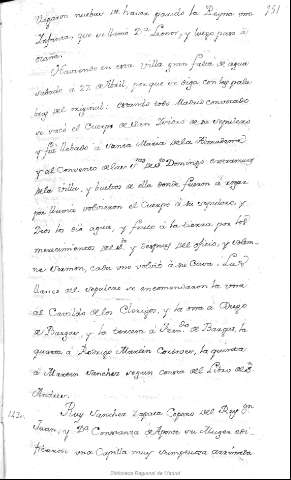 251
llegaron nuevas de haver parido la Reyna una
Infanta, que se llamó Dª Leonor, y luego pasó á
Ocaña.
Haviendo en esta Villa gran falta de agua
sabado a 22 de Abril, porque se diga con las pala
bras del original: Estando todo Madrid
se sacó el Cuerpo de Sn Isidro de su sepulcro
y fué llebado á Santa Maria de la
y al Convento de Sto Domingo
de la Villa, y bueltos de ella donde fueron á rogar
por lluvia volvieron el Cuerpo á su sepulcro, y
Dios les dió agua, y fruto á la tierra por los
merecimientos del Sto y despues del oficio, y solem
ne Sermon, cada uno volvió á su Casa. Las
llaves del sepulcro se encomendaron la una
al Cavildo de los Clerigos, y la otra á Diego
de Bargas, y la tercera á Ferndo de Bargas, la
quarta á Rodrigo Martin, la quinta
á Martin Sanchez segun consta del Libro de Sn
Andres.
Ruy Sanchez Zapata Copero del Rey Dn
Juan, y Dª Constanza de Aponte su Muger edi
ficaron una Capilla muy sumptuosa
Biblioteca Regional de Madrid